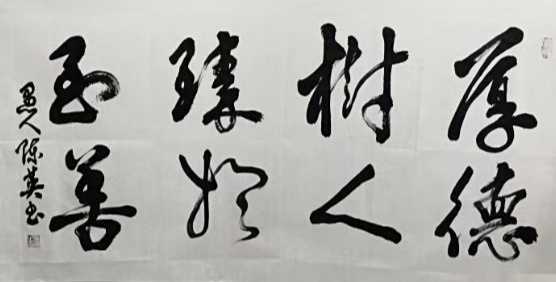 厚德
樹人
臻於
至善
愚人陈英书